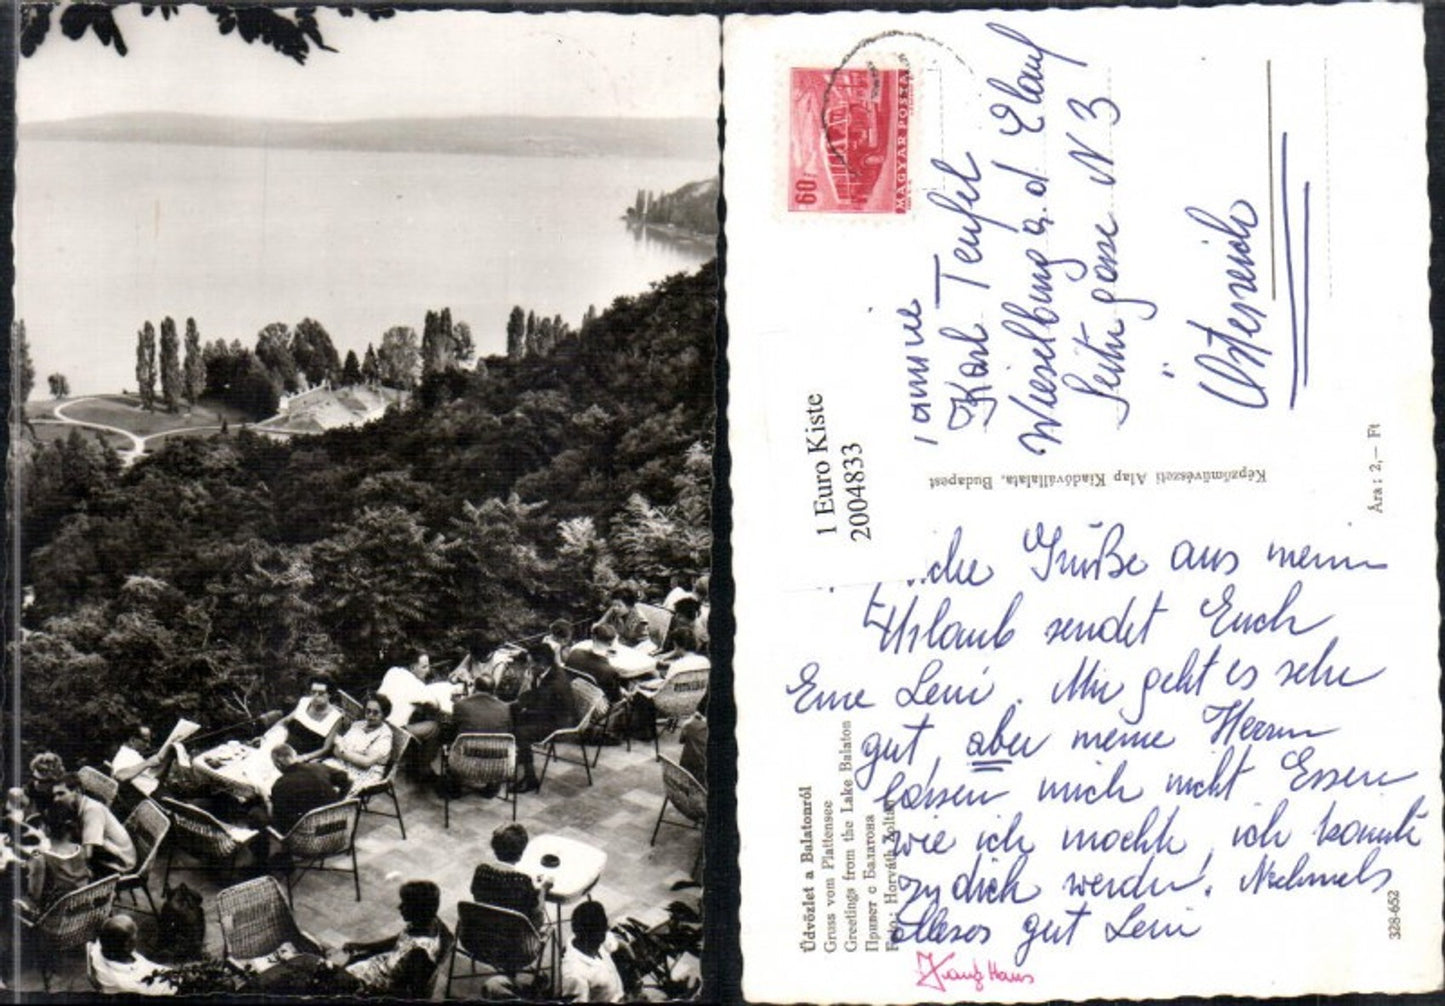 60f
MAGYAR POSTA
Karl Teufel
Wieselburg a. d Erlauf
Seitngasse N 3
Österreich
1 Euro Kiste
2004833
Képzőművészeti Alap Kiadóvállalata, Budapest
Ára: 2,— Ft
Grüße aus meinem
Urlaub sendet Euch
Eure Leni. Mir geht es sehr
gut, aber meine Herren
lassen mich nicht Essen
wie ich möchte, ich könnte
zu dick werden. Nochmals
alles gut Leni
Üdvözlet a Balatonról
Gruss vom Plattensee
Greetings from the Lake Balaton
Привет с Балатона
Foto: Horváth Zoltán
328-652